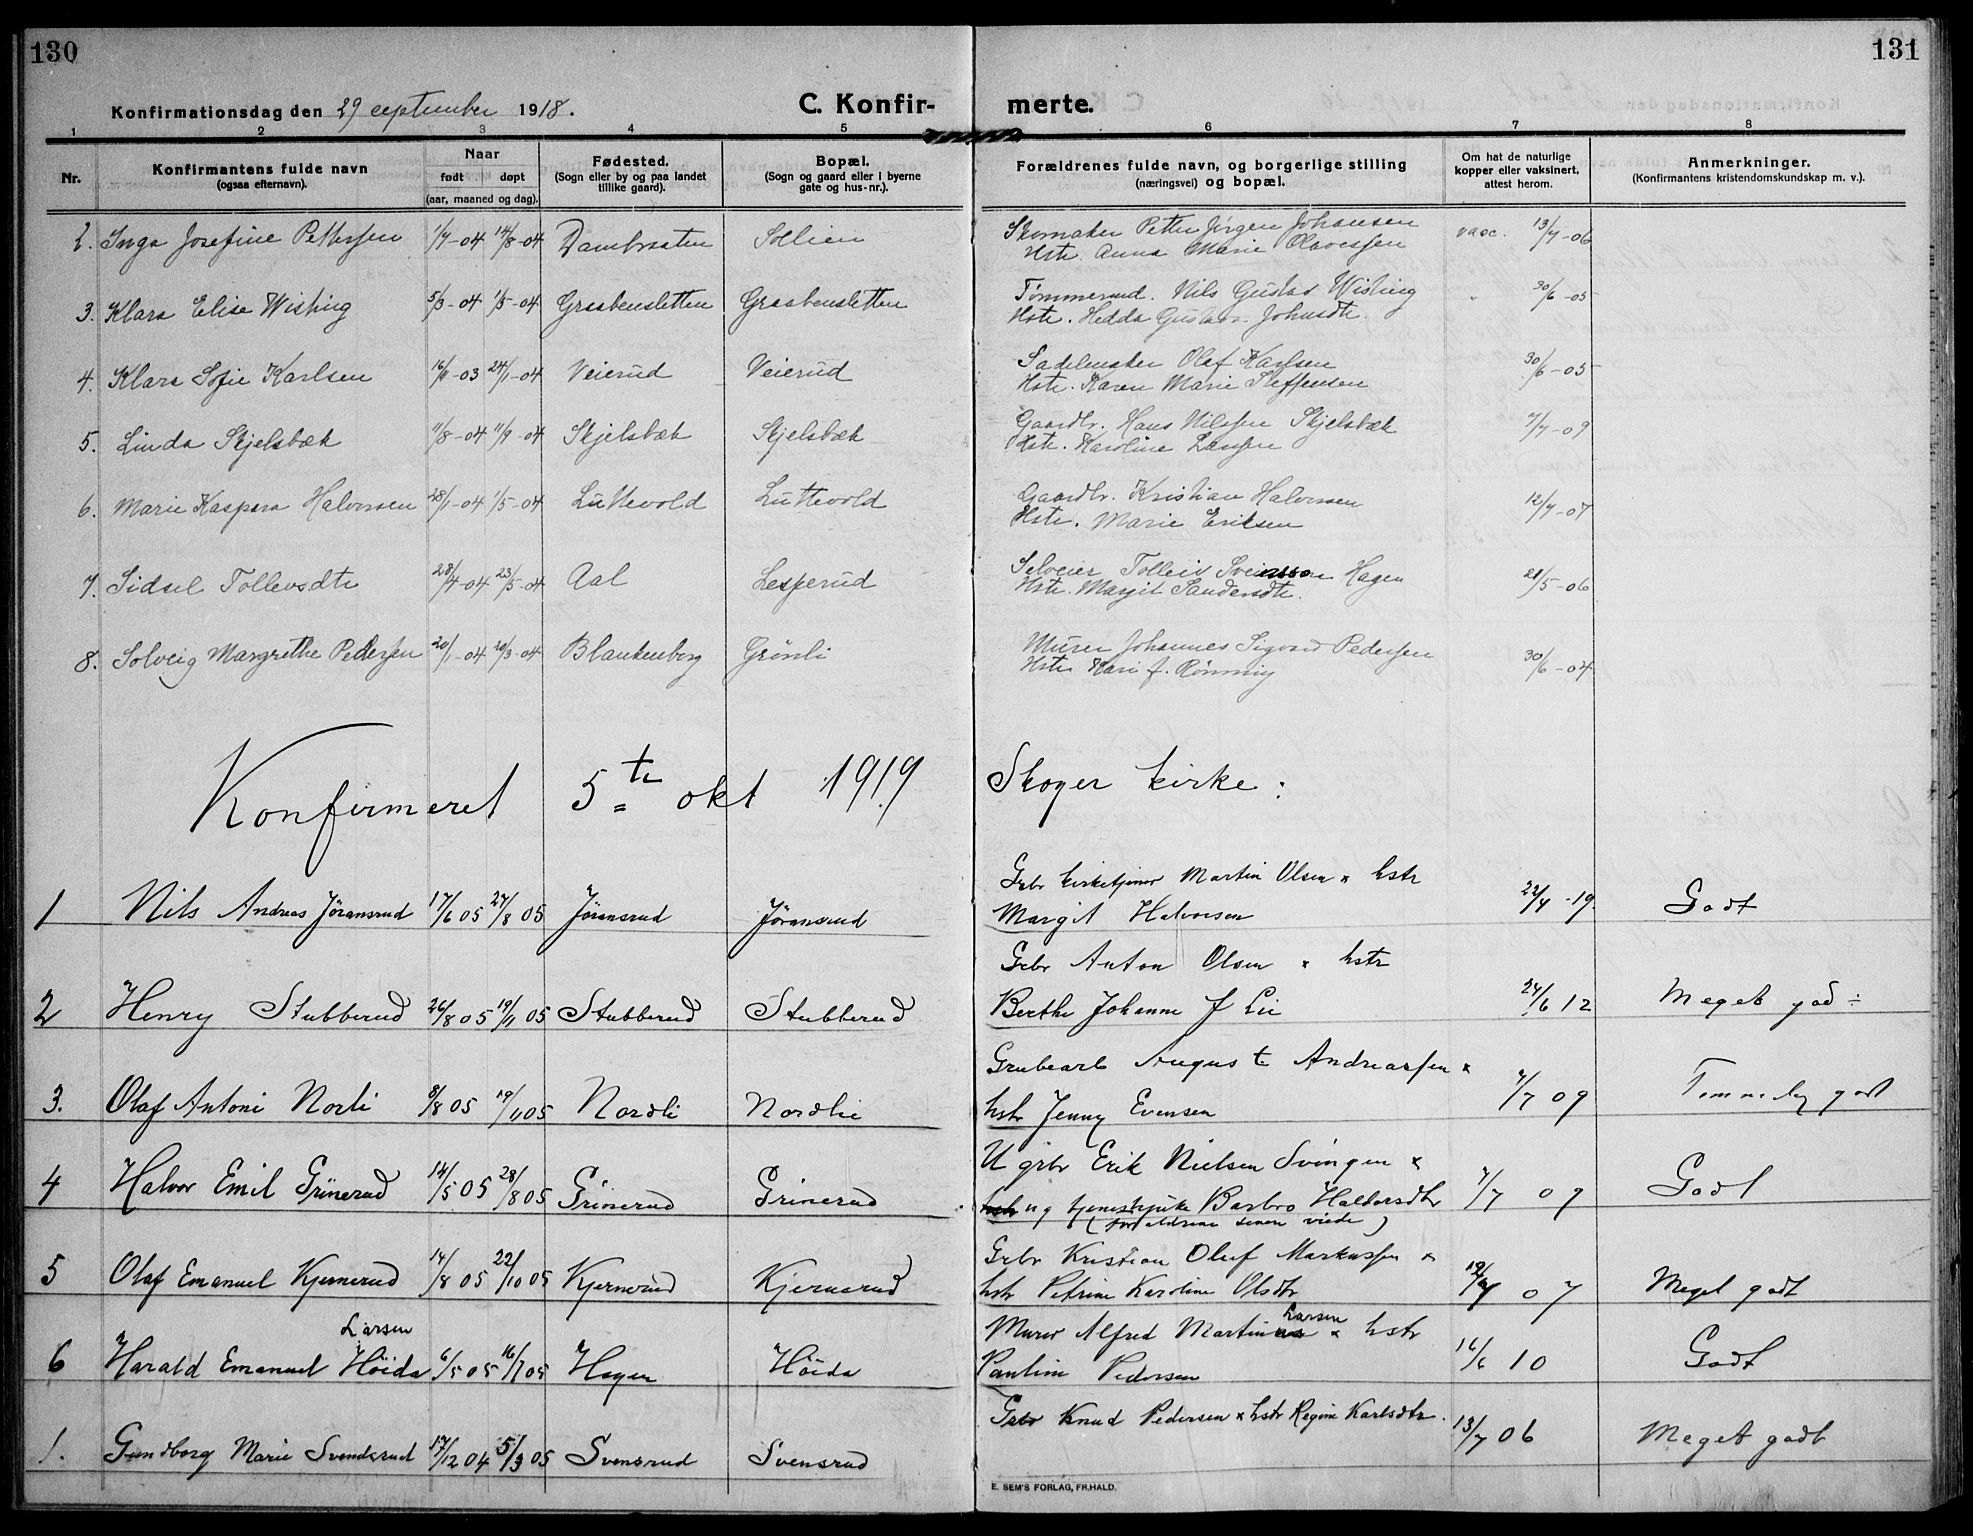 130
131
Konfirmationsdag den 29 september 1918.
C. Konfir-
merte.
1 2 3 4 5 6 7 8
Nr.
Konfirmantens fulde navn
(ogsaa efternavn).
Naar
født døpt
(aar, maaned og dag).
Fødested.
(Sogn eller by og paa landet
tillike gaard).
Bopæl.
(Sogn og gaard eller i byerne
gate og hus-nr.).
Forældrenes fulde navn, og borgerlige stilling
(næringsvei) og bopæl.
Om hat de naturlige
kopper eller vaksinert,
attest herom.
Anmerkninger.
(Konfirmantens kristendomskundskap m. v.).
2. Inga Josefine Pettersen 1/7-04 14/8-04 Dambraaten Sollien Skomaker Petter Jørgen Johansen vacc. 13/7-06
Hstr. Anna Marie Olavessen
3. Klara Elise Wisting 5/3-04 1/5-04 Graabensletten Graabensletten Tømmermd. Nils Gustav Wisting " 30/6-05
Hstr. Hedda Gustava Johnsdtr.
4. Klara Sofie Karlsen 16/11-03 24/1-04 Veierud Veierud Sadelmaker Olaf Karlsen 30/6-05
Hstr. Karen Marie Steffensen
5. Linda Skjelsbæk 11/8-04 11/9-04 Skjelsbæk Skjelsbæk Gaardbr. Hans Nilssen Skjelsbæk 7/7-09
Hstr. Karoline Larssen
6. Marie Kaspara Halvorsen 28/1-04 1/5-04 Luttevold Luttevold Gaardbr. Kristian Halvorsen 12/7-07
Hstr. Marie Eriksen
7. Sidsel Tollevsdtr 28/4-04 23/5-04 Aal Lesperud Selveier Tolleiv Sveinsson Hagen 21/5-06
Hstr. Margit Sandersdtr.
8. Solveig Margrethe Pedersen 20/1-04 20/3-04 Blankenborg Grønli Murer Johannes Sigvard Pedersen 30/6-04
Hstr Kari J. Rønning
Konfirmeret 5te okt 1919 Skoger kirke:
1 Nils Andreas Jøransrud 17/6 05 27/8 05 Jøransrud Jøransrud Grbr kirketjener Martin Olsen x hstr 22/4-19. Godt
Margit Halvorsen
2 Henry Stubberud 26/8 05 19/11 05 Stubberud Stubberud Grbr Anton Olsen x hstr
Berthe Johanne J Lie 24/6 12 Meget god ÷
3. Olaf Antoni Norli 8/8 05 19/11 05 Nordli Nordlie Grubearb August Andreassen x
hstr Jenny Evensen 7/7 09 Temmelig godt
4 Halvor Emil Grinerud 14/5 05 28/8 05 Grinerud Grinerud U grbr Erik Nielsen Svingen x
hstr ug tjenestepike Barbro Haldorsdtr 7/7 09 Godt
(forældrene senere viede)
5 Olaf Emanuel Kjernerud 14/8 05 22/10 05 Kjernerud Kjernerud Grbr Kristian Oluf Markussen x
hstr Petrine Karoline Olsdtr 12/7 07 Meget godt
6 Harald Emanuel Larsen Höida 6/5 05 16/7 05 Hagen Höida Murer Alfred Martin Larsen x hstr
Pauline Pedersen 16/6 10 Godt
1. Gundborg Marie Svendsrud 17/12 04 5/3 05 Svensrud Svensrud Grbr Knud Pedersen x hstr Regine Karlsdtr. 13/7 06 Meget godt
E. SEM'S FORLAG, FR.HALD.